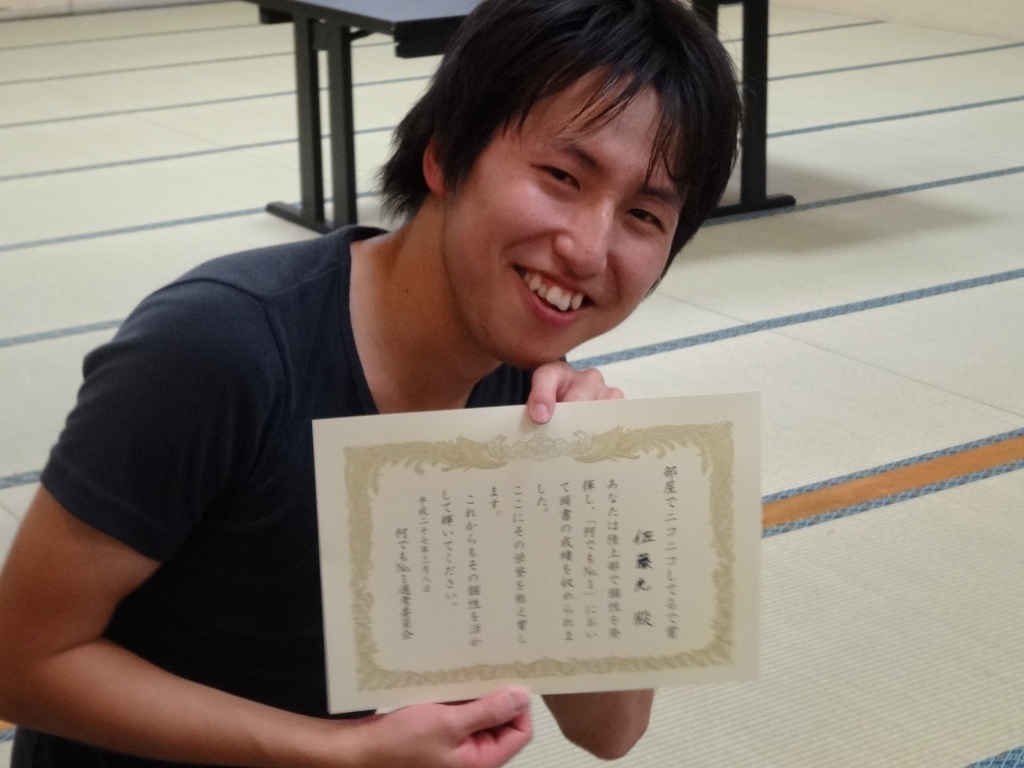 部屋でニコニコしてるで賞
佐藤光 殿
あなたは陸上部で個性を発
揮し、「何でもNo.1」に於い
て頭書の成績を収められま
した。
ここにその栄誉を称え賞し
ます。
これからもその個性を活か
して輝いてください。
平成二十七年三月八日
何でもNo.1選考委員会